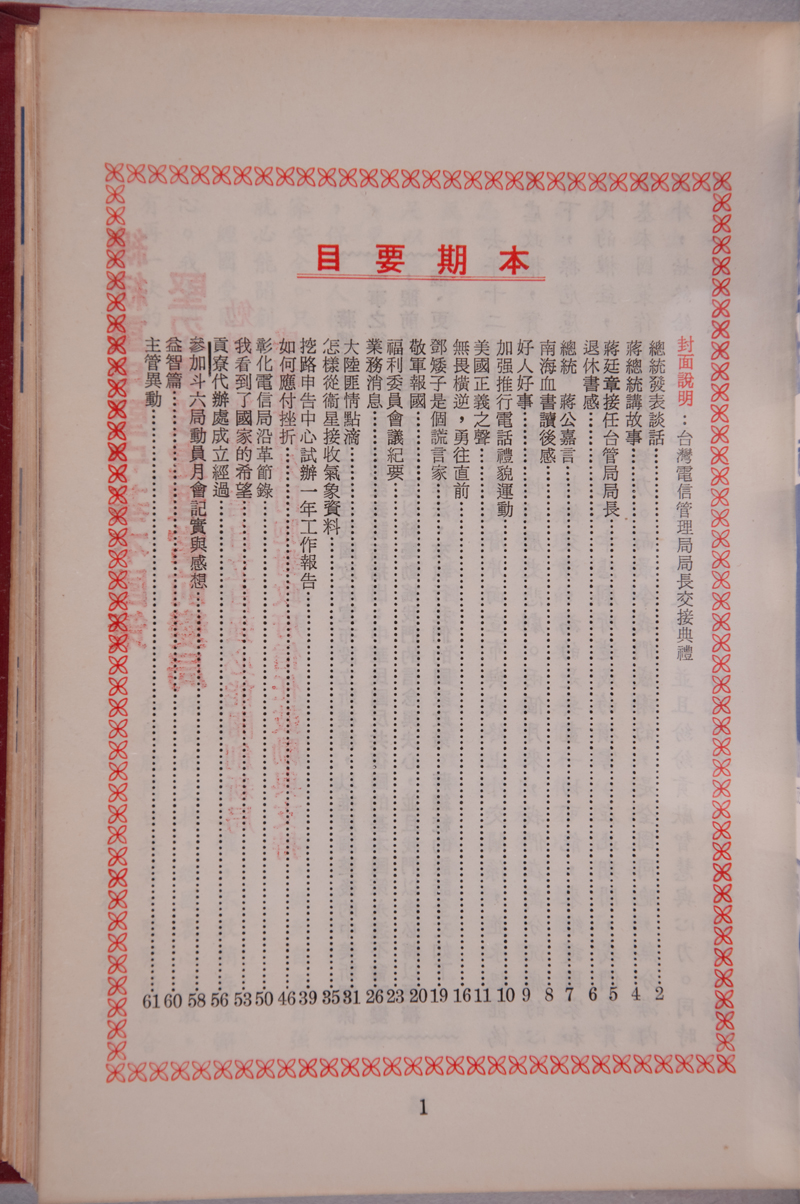 本期要目
封面說明：台灣電信管理局局長交接典禮
總統發表談話……2
蔣總統講故事……4
蔣廷章接任台管局局長……5
退休書感……6
總統　蔣公嘉言……7
南海血書讀後感……8
好人好事……9
加强推行電話禮貌運動……10
美國正義之聲……11
無畏橫逆，勇往直前……16
鄧矮子是個謊言家……19
敬軍報國……20
福利委員會議紀要……23
業務消息……26
大陸匪情點滴……31
怎樣從衞星接收氣象資料……35
挖路申告中心試辦一年工作報告……39
如何應付挫折……46
彰化電信局沿革節錄……50
我看到了國家的希望……53
貢寮代辦處成立經過……56
參加斗六局動員月會記實與感想……58
益智篇……60
主管異動……61
1